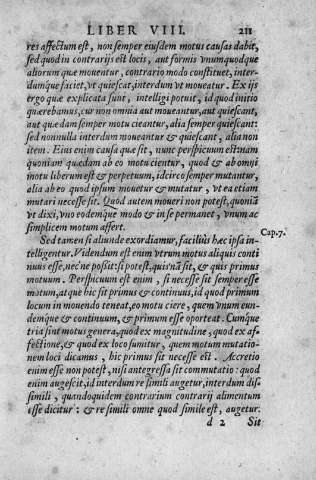 LIBER VIII. 211
res affectum est, non semper eiusdem motus causas dabit,
sed quod in contrarijs est locis, aut formis vnumquodque
aliorum quæ mouentur, contrario modo constituet, inter-
dumque faciet, vt quiescat, interdum vt moueatur. Ex ijs
ergo quæ explicata sunt, intelligi potuit, id quod initio
quærebamus, cur non omnia aut moueantur, aut quiescant,
aut quædam semper motu cieantur, alia semper quiescant:
sed nonnulla interdum moueantur & quiescant, alia non
item. Eius enim causa quæ sit, nunc perspicuum est: nam
quoniam quædam ab eo motu cientur, quod & ab omni
motu liberum est & perpetuum, idcirco semper mutantur,
alia ab eo quod ipsum mouetur & mutatur, vt ea etiam
mutari necesse sit. Quod autem moueri non potest, quoniā
vt dixi, vno eodemque modo & in se permanet, vnum ac
simplicem motum affert.
Sed tamen si aliunde exordiamur, facilius hæc ipsa in-
Cap.7.
telligentur. Videndum est enim vtrum motus aliquis conti
nuus esse, nec ne possit: si potest, quis nā sit, & quis primus
motuum. Perspicuum est enim, si necesse sit semper esse
motum, atque hic sit primus & continuus, id quod primum
locum in mouendo teneat, eo motu ciere, quem vnum eun-
demque & continuum, & primum esse oporteat. Cumque
tria sint motus genera, quod ex magnitudine, quod ex af-
fectione, & quod ex loco sumitur, quem motum mutatio-
nem loci dicamus, hic primus sit necesse est. Accretio
enim esse non potest, nisi antegressa sit commutatio: quod
enim augescit, id interdum re simili augetur, interdum dis-
simili, quandoquidem contrarium contrarij alimentum
esse dicitur: & re simili omne quod simile est, augetur.
d 2 Sit